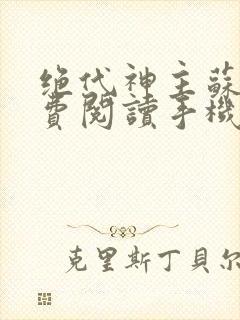 绝代神主蘇
費閱讀手機
克里斯丁貝尔